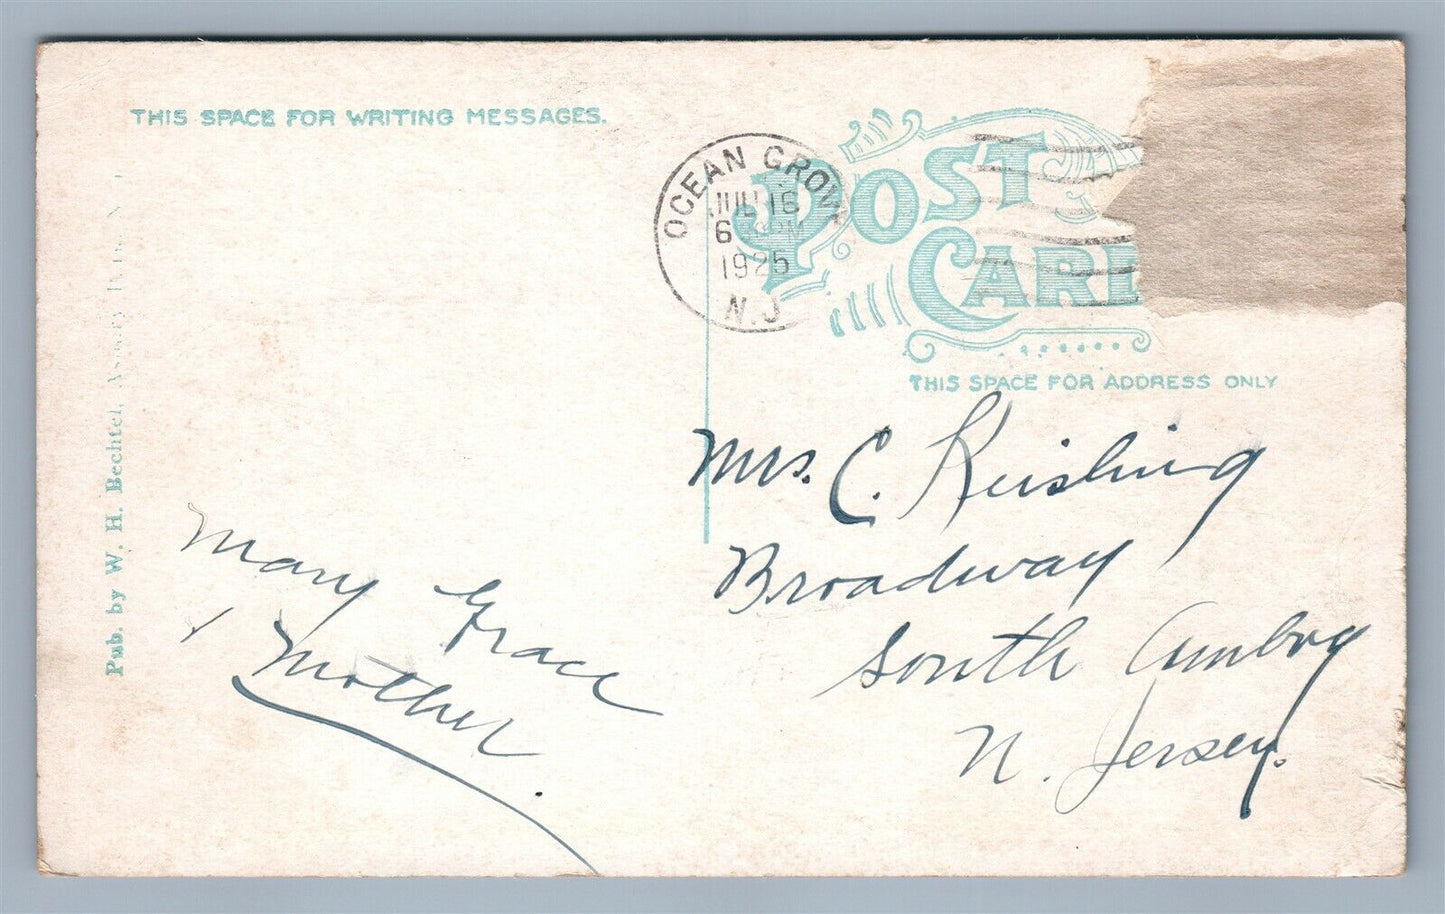 THIS SPACE FOR WRITING MESSAGES.
POST CARD
OCEAN GROVE
JUL 16
6 PM
1925
N.J
THIS SPACE FOR ADDRESS ONLY
Pub. by W. H. Bechtel, Asbury
Mrs. C. Reisling
Broadway
South Amboy
N. Jersey.
Mary Grace
Mother